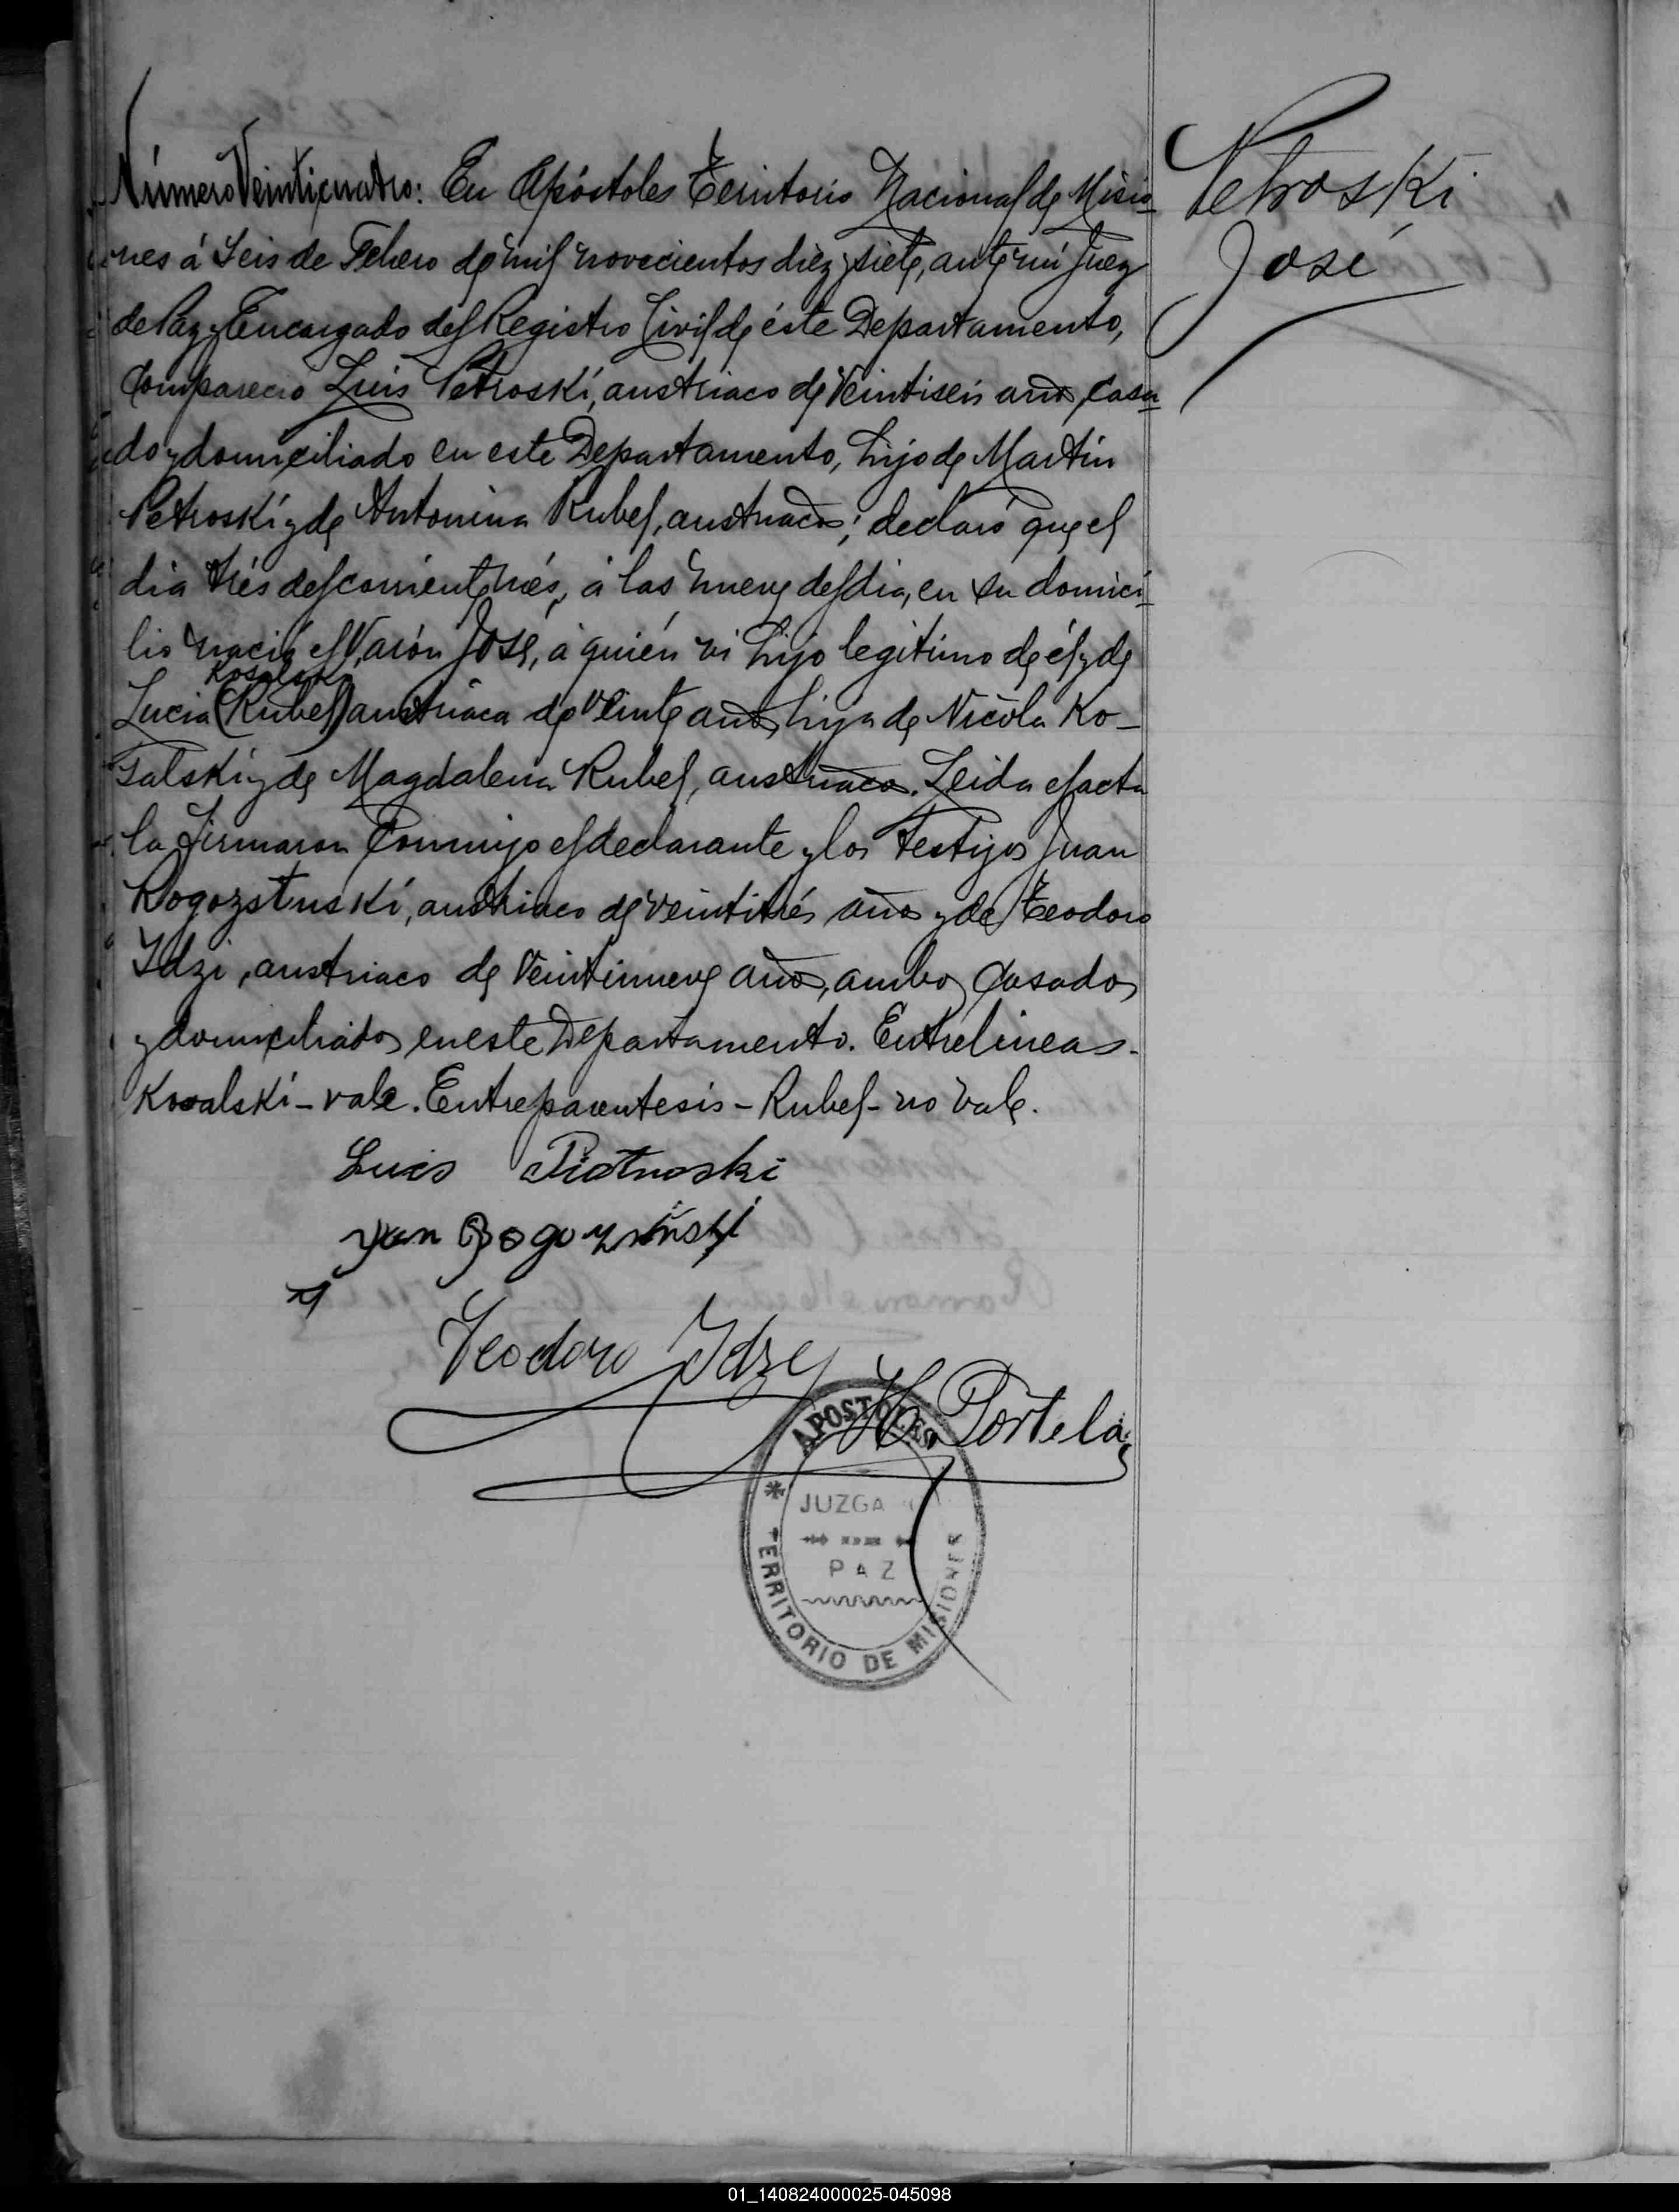 Petroski
José
Número Veinticuatro: En Apóstoles Territorio Nacional de Misio-
nes á Seis de Febrero de mil novecientos diez y siete, ante mí Juez
de Paz y Encargado del Registro Civil de éste Departamento,
Compareció Luis Petroski, austriaco de Veintiseis años, casa-
do y domiciliado en este Departamento, hijo de Martín
Petroski y de Antonina Rubel, austriacos; declaró que el
dia trés del corriente més, á las nueve del dia, en su domici-
lio nació el Varón José, á quién vi hijo legítimo de él y de
Kosalski
Lucia (Rubel) austriaca de Veinte años, hija de Nicola Ko-
salski y de Magdalena Rubel, austriacos. Leida el acta
la firmaron Conmigo el declarante y los Testigos Juan
Rogozstnski, austriaco de veintitrés años y de Teodoro
Idzi, austriaco de Veintinueve años, ambos Casados
y domiciliados en este Departamento. Entrelineas-
Kosalski-vale. Entreparentesis-Rubel-no vale.
Luis Piotroski
Jan Rogozinski
Teodoro Idzy
H. Portela
APOSTOLES
JUZGA
PAZ
TERRITORIO DE MISIONES
01_140824000025-045098